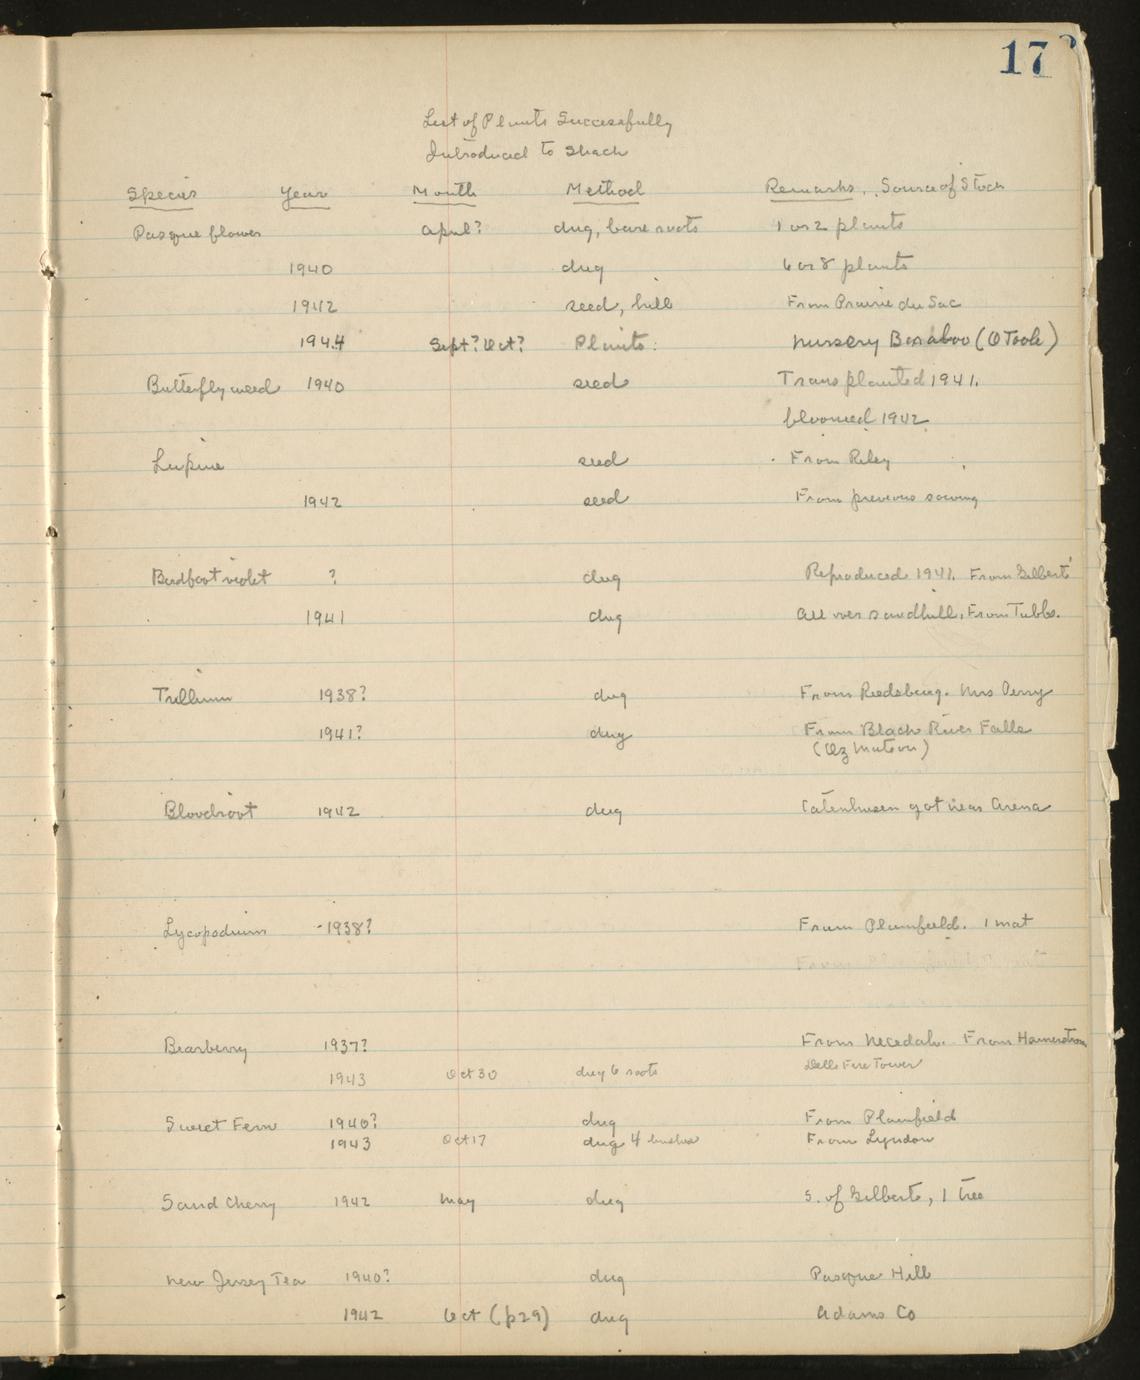 17
List of Plants Successfully
Introduced to Shack
Species Year Month Method Remarks, Source of Stock
Pasque flower April? dug, bare roots 1 or 2 plants
1940 dug 6 or 8 plants
1942 seed, hill From Prairie du Sac
1944 Sept? Oct? Plants Nursery Baraboo (O Toole)
Butterflyweed 1940 seed Transplanted 1941.
bloomed 1942.
Lupine seed From Riley
1942 seed From previous sowing
Birdfoot violet ? dug Reproduced 1941. From Gilberts'
1941 dug All over sandhill. From Tubbs.
Trillium 1938? dug From Reedsburg. Mrs Perry
1941? dug From Black River Falls
(Oz Matson)
Bloodroot 1942 dug Catenhusen got near Arena
Lycopodium 1938? From Plainfield. 1 mat
Bearberry 1937? From Necedah. From Hamerstrom
1943 Oct 30 dug 6 roots Dells Fire Tower
Sweet Fern 1940? dug From Plainfield
1943 Oct 17 dug 4 bushes From Lyndon
Sand Cherry 1942 May dug S. of Gilberts, 1 tree
New Jersey Tea 1940? dug Pasque Hill
1942 Oct (p29) dug Adams Co